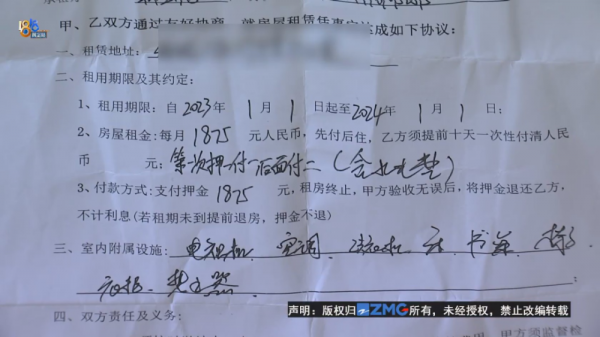 甲、乙双方通过友好协商,就房屋租赁事宜达成如下协议:
一、租赁地址:
二、租用期限及其约定:
1、租用期限:自2023年1月1日起至2024年1月1日;
2、房屋租金:每月1875元人民币,先付后住,乙方须提前十天一次性付清人民
币 元;第一次押一付一后面付二(含水电垫)
3、付款方式:支付押金1875元,租房终止,甲方验收无误后,将押金退还乙方,
不计利息(若租期未到提前退房,押金不退)
三、室内附属设施:电视机 空调 洗衣机 床 书桌 椅子
衣柜 热水器
声明:版权归ZMG所有,未经授权,禁止改编转载
四、双方责任及义务:
甲方须监督检